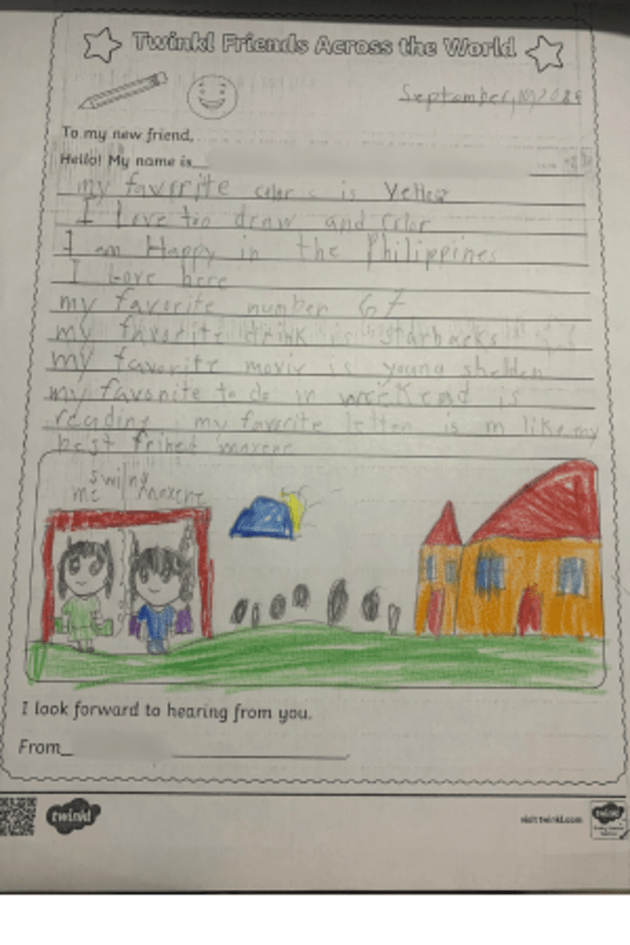 Twinkl Friends Across the World
To my new friend,
Hello! My name is
my favorite color s is Yellow
I Love too draw and Color
I am Happy in the Philippines
I Love here
my favorite number 67
my favorite drink is starbacks
my favorite movie is young shelden
my favonite to do in weekead is
reading my favorite letter is m like my
best frined maxene
swing
me maxene
I look forward to hearing from you.
From
twinkl
visit twinkl.com
twinkl